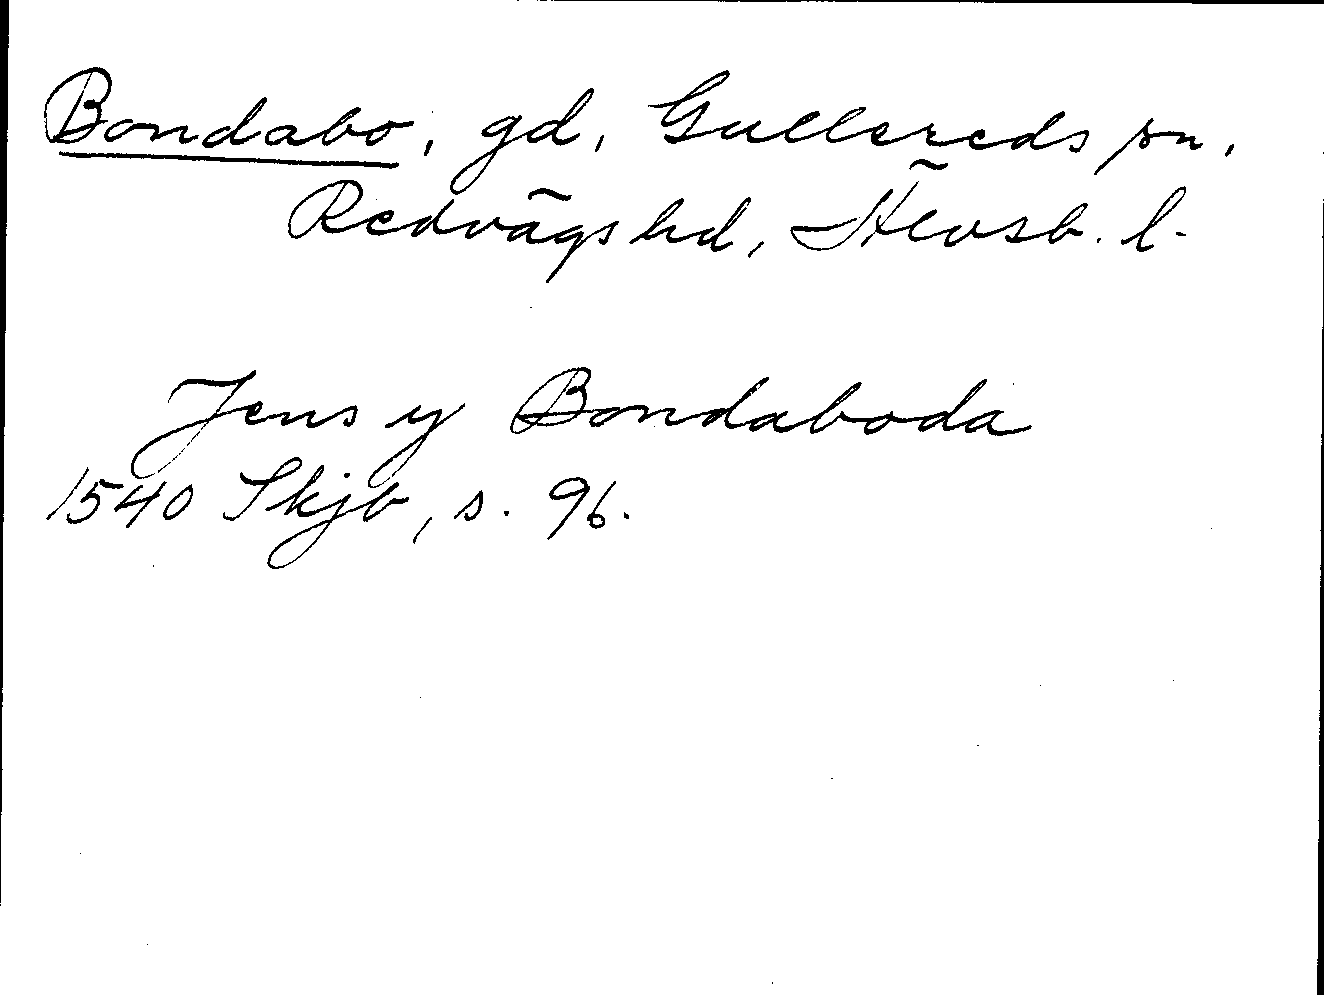 Bondabo, gd, Gullereds sn,
Redvägs hd, Älvsb. l.
Jens y Bondaboda
1540 Skjb, s. 96.